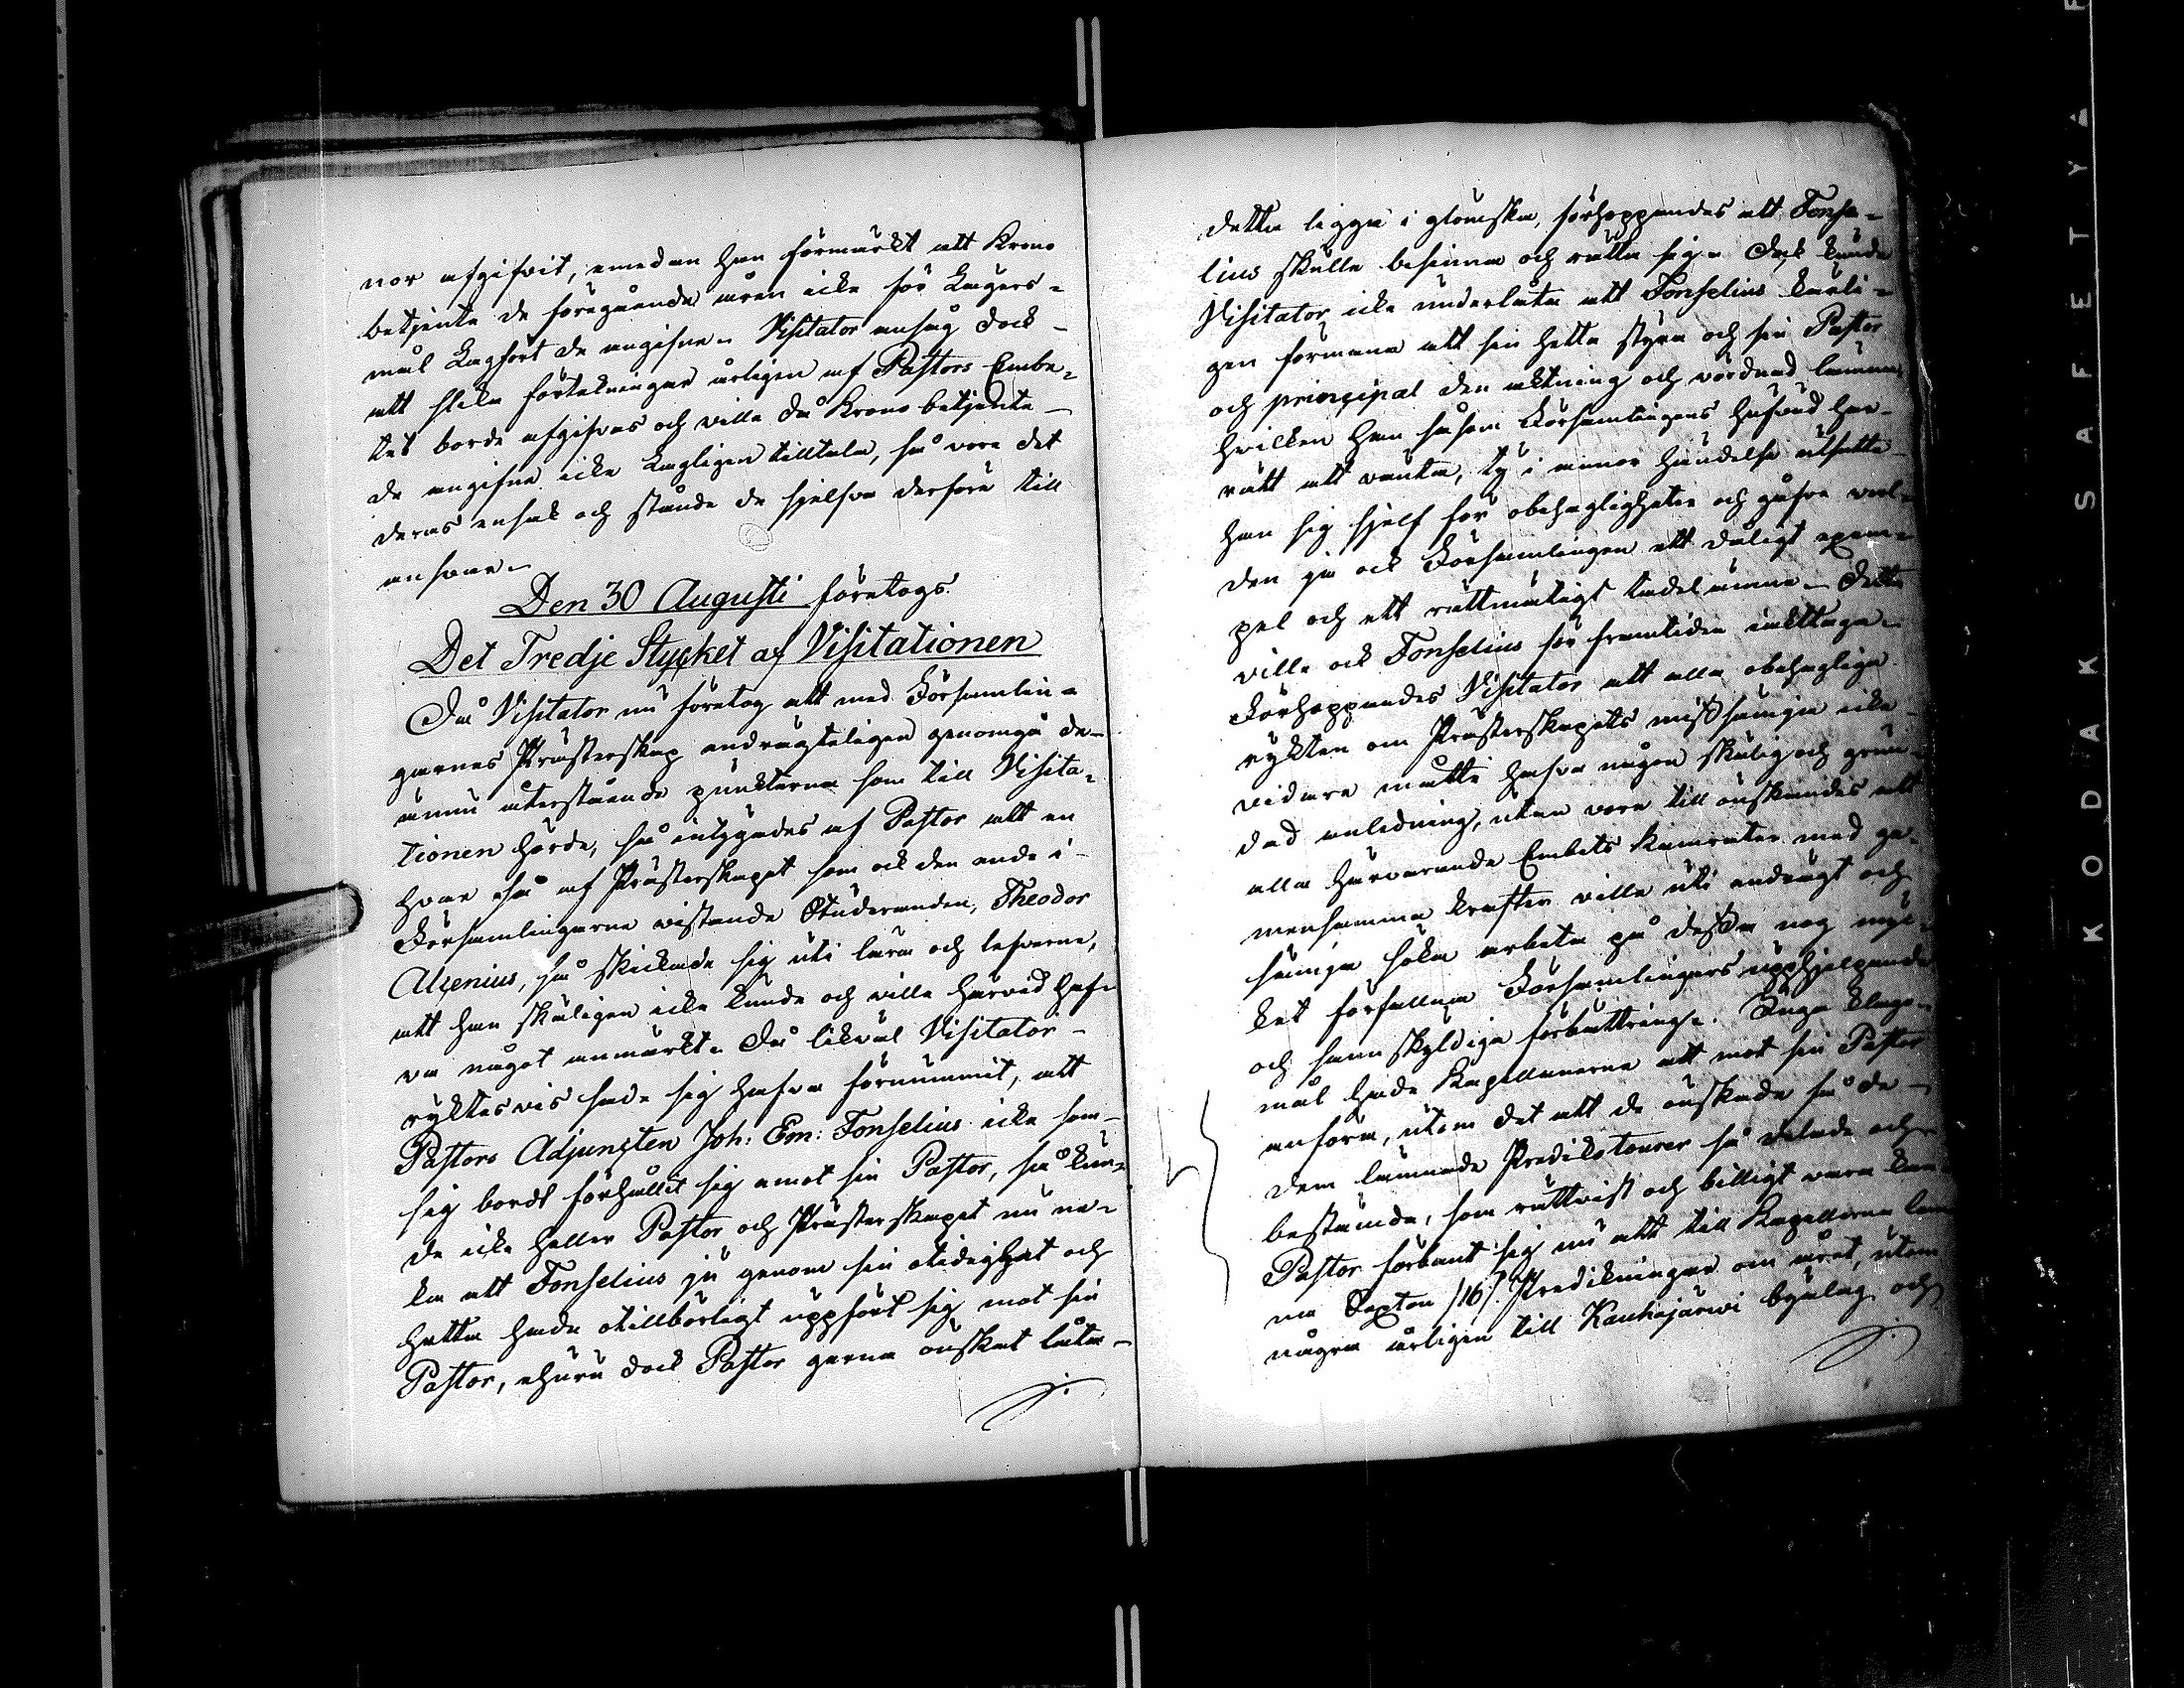 nor afgifvit, emedan han förmärkt att Krono
betjente de föregående åren icke för Lägers=
mål Lagfört de angifne. Visitator ansåg dock
att slika förtekningar årligen af Pastors Embe=
tet borde afgifvas och ville då Krono betjente
de angifne icke Lagligen tilltala, så vore det
deras ensak och stånde de sjelfva derföre till
ansvar.
Den 30 Augusti företogs
Det Tredje Stycket af Visitationen
Då Visitator nu företog att med Församlin=
garnes Prästerskap endrägteligen genomgå de
ännu återstående punkterna som till Visita=
tionen hörde, så intygades af Pastor att en
hvar så af Prästerskapet som ock den ende i
Församlingarne vistande Studeranden, Theodor
Alcenius, så skickade sig uti lära och lefverne,
att han skäligen icke kunde och ville härvid haf=
va något anmärkt. Då likväl Visitator
ryktesvis sade sig hafva förnummit, att
Pastors Adjuncten Joh: Em: Fonselius icke som
sig bordt förhållit sig emot sin Pastor, så kun=
de icke heller Pastor och Prästerskapet nu ne=
ka att Fonselius ju genom sin otidighet och
hetta hade otillbörligt uppfört sig mot sin
Pastor, ehuru dock Pastor gerna önskat låta
detta ligga i glömska, förhoppandes att Fonse=
lius skulle besinna och rätta sig. Dock kunde
Visitator icke underlåta att Fonselius kärli=
gen förmana att sin hetta styra och sin Pastor
och principal den aktning och vördnad lämna
hvilken han såsom Församlingens hufvud har
rätt att vänta, ty i annor händelse utsatte
han sig sjelf för obehagligheter och gåfve verl=
den ja ock Församlingen ett dåligt exem=
pel och ett rättmätigt tadel ämne. Detta
ville ock Fonselius för framtiden iakttaga.
Förhoppandes Visitator att alla obehagliga
rykten om Prästerskapets missämja icke
vidare måtte hafva någon skälig och grun=
dad anledning, utan vore till önskandes att
alla härvarande Embets Kamrater med ge=
mensamma krafter ville uti endrägt och
sämja söka arbeta på dessa nog myc=
ket förfallna Församlingars upphjelpande
och sann skyldiga förbättring. Inga klago=
mål hade Kapellanerne att mot sin Pastor
anföra, utom det att de önskade få de
dem lämnade Predikoturer så delade och
bestämda, som rättvist och billigt vara kan
Pastor förbant sig nu att till Kapellerne läm
na Sexton /16/ Predikningar om året, utom
några årligen till Kauhajärwi byalag och